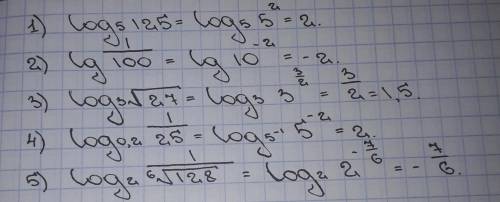 1) log₅ 125 = log₅ 5² = 2.
2) lg 1/100 = lg 10⁻² = -2.
3) log₃ √27 = log₃ 3^(3/2) = 3/2 = 1,5.
4) log₀,₂ 1/25 = log₅₋₁ 5⁻² = 2.
5) log₂ 1/⁶√128 = log₂ 2^(-7/6) = -7/6.